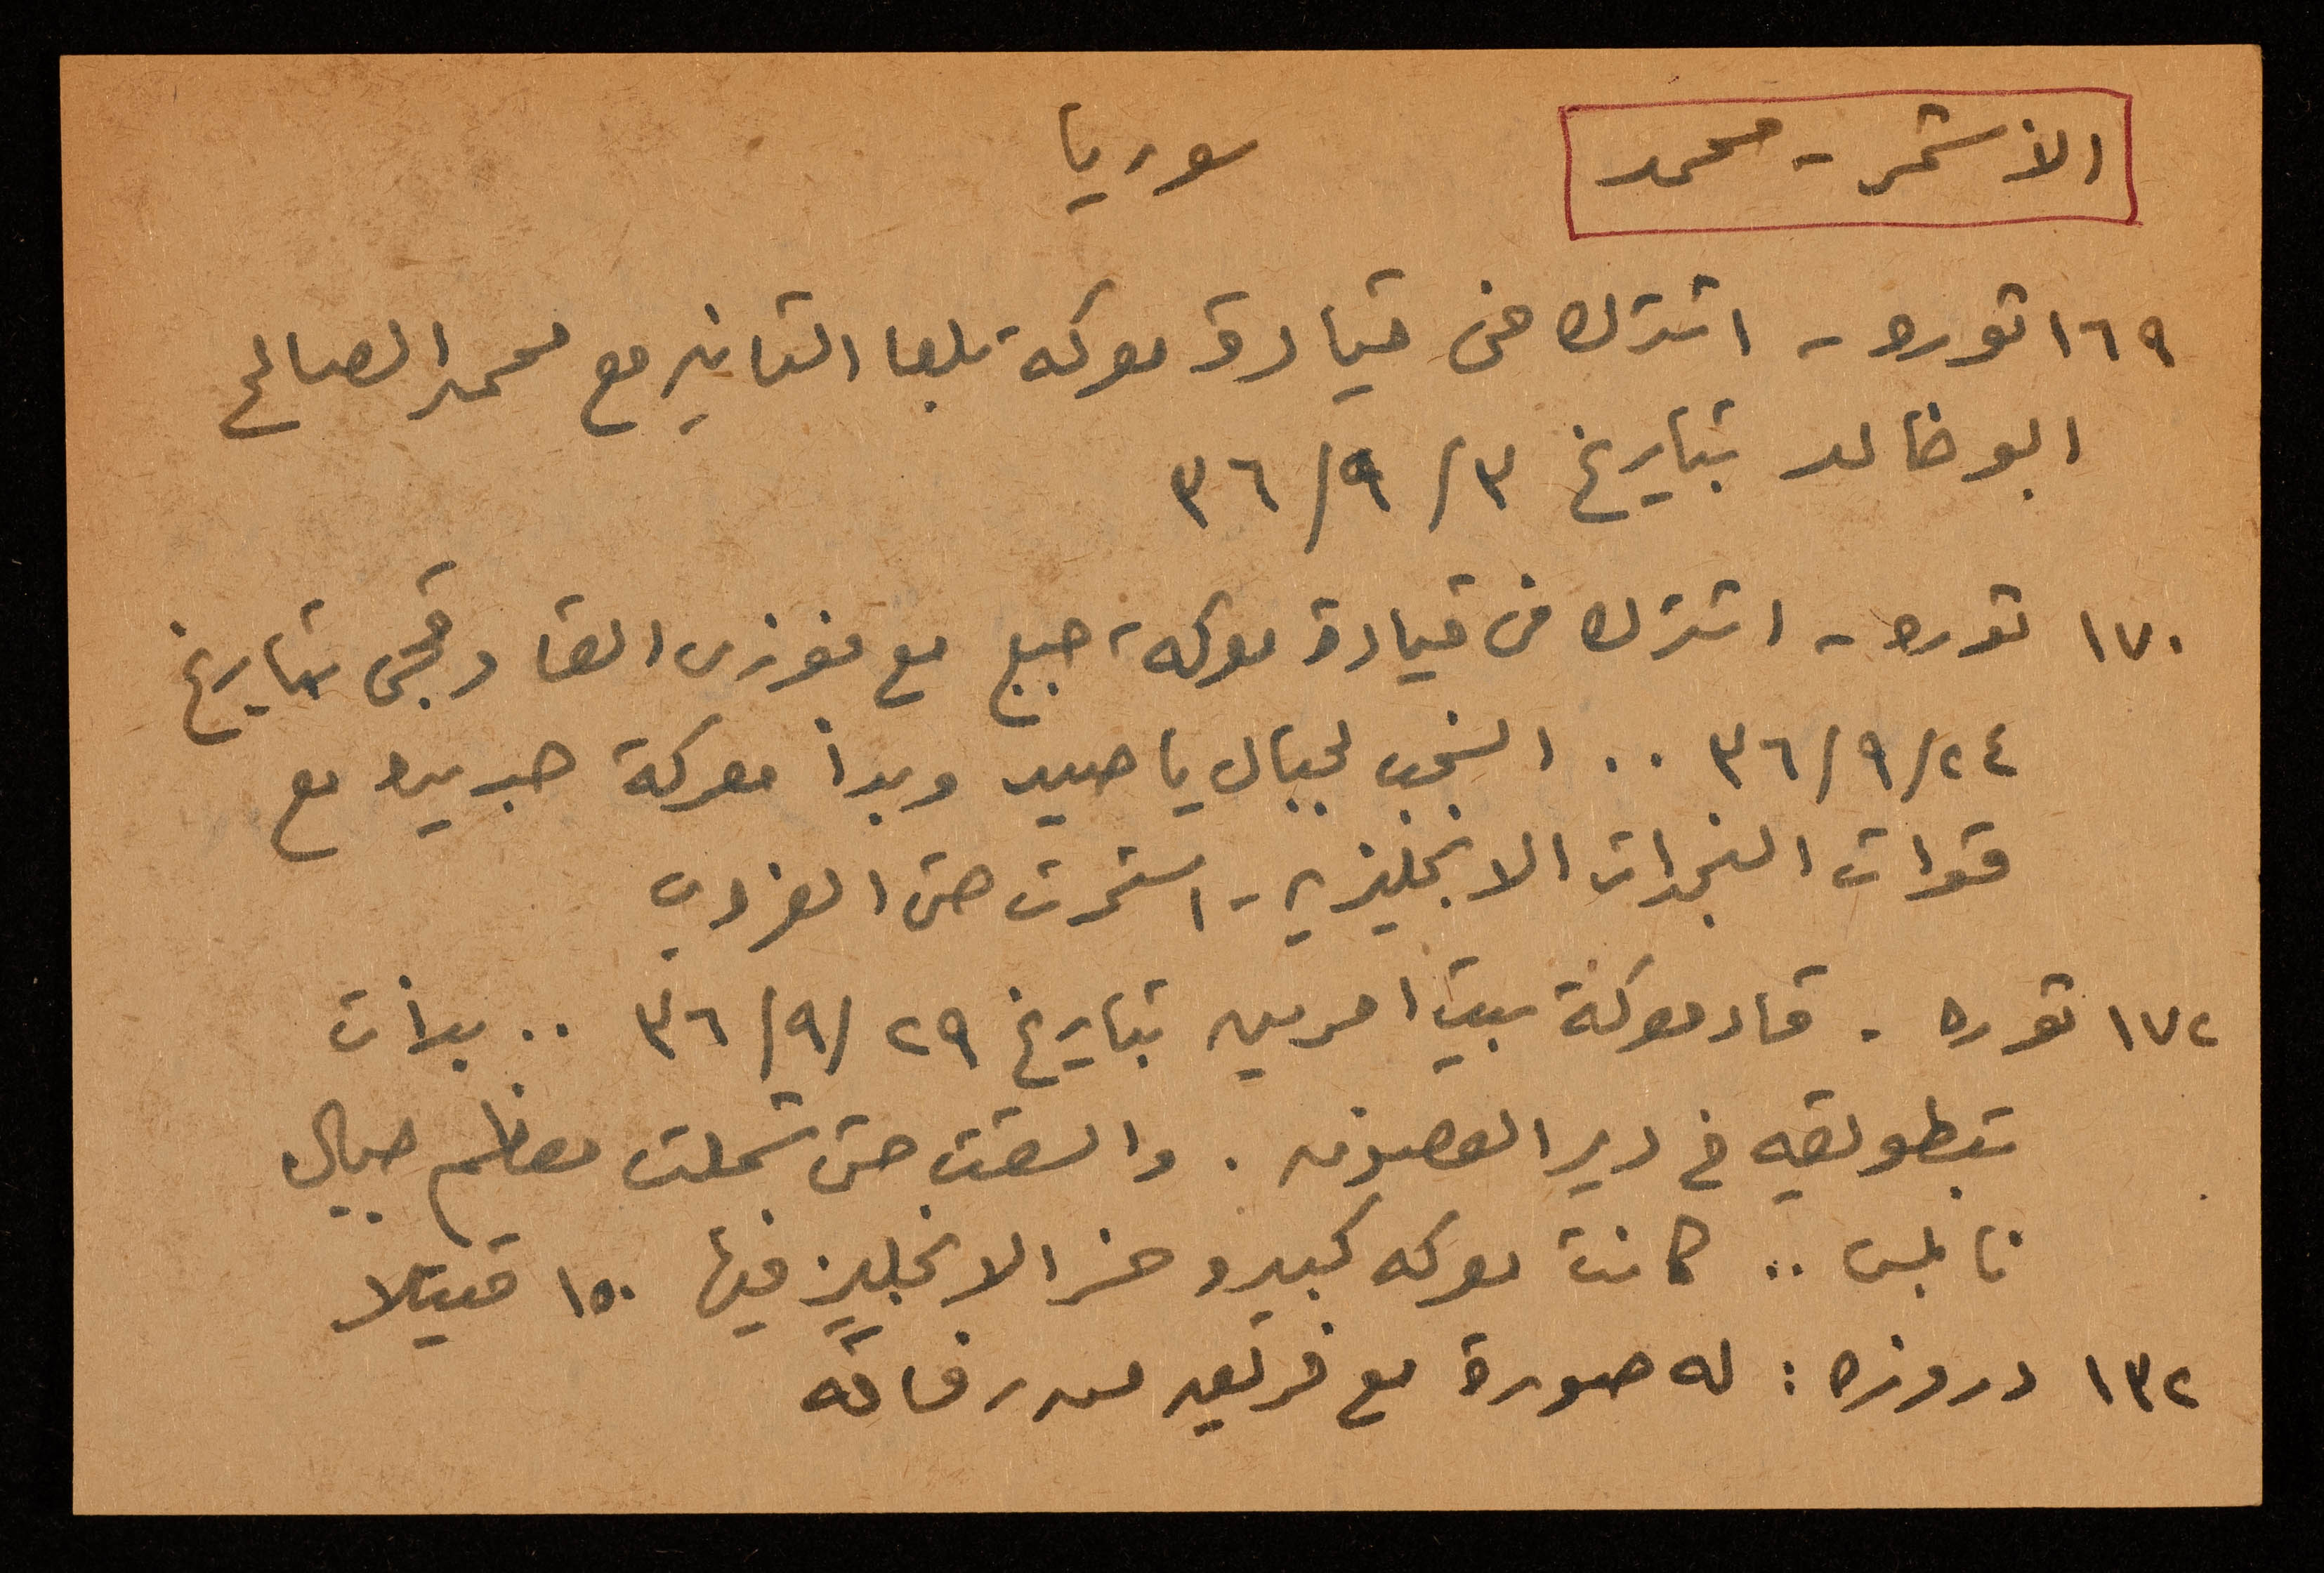 الأشمر - محمد
سوريا
١٦٩ ثوره - اشترك في قيادة معركة بلعا الثانيه مع محمد الصالح
ابو خالد بتاريخ ٣/٩/٣٦
١٧٠ ثوره - اشترك في قيادة معركة جبع مع فوزي القاوقجي بتاريخ
٢٤/٩/٣٦ .. انسحب لجبال ياصيد وبدأ معركة جديده مع
قوات النجدات الانجليزيه - استمرت حتى الغروب
١٧٢ ثوره . قاد معركة بيت امرين بتاريخ ٢٩/٩/٣٦ .. بدأت
بتطويقه في دير الغصون . واتسعت حتى شملت معظم جبال
نابلس .. كانت معركه كبيره خسر الانجليز فيها ١٥٠ قتيلا
١٣٢ دروزه : له صورة مع فريق من رفاقه